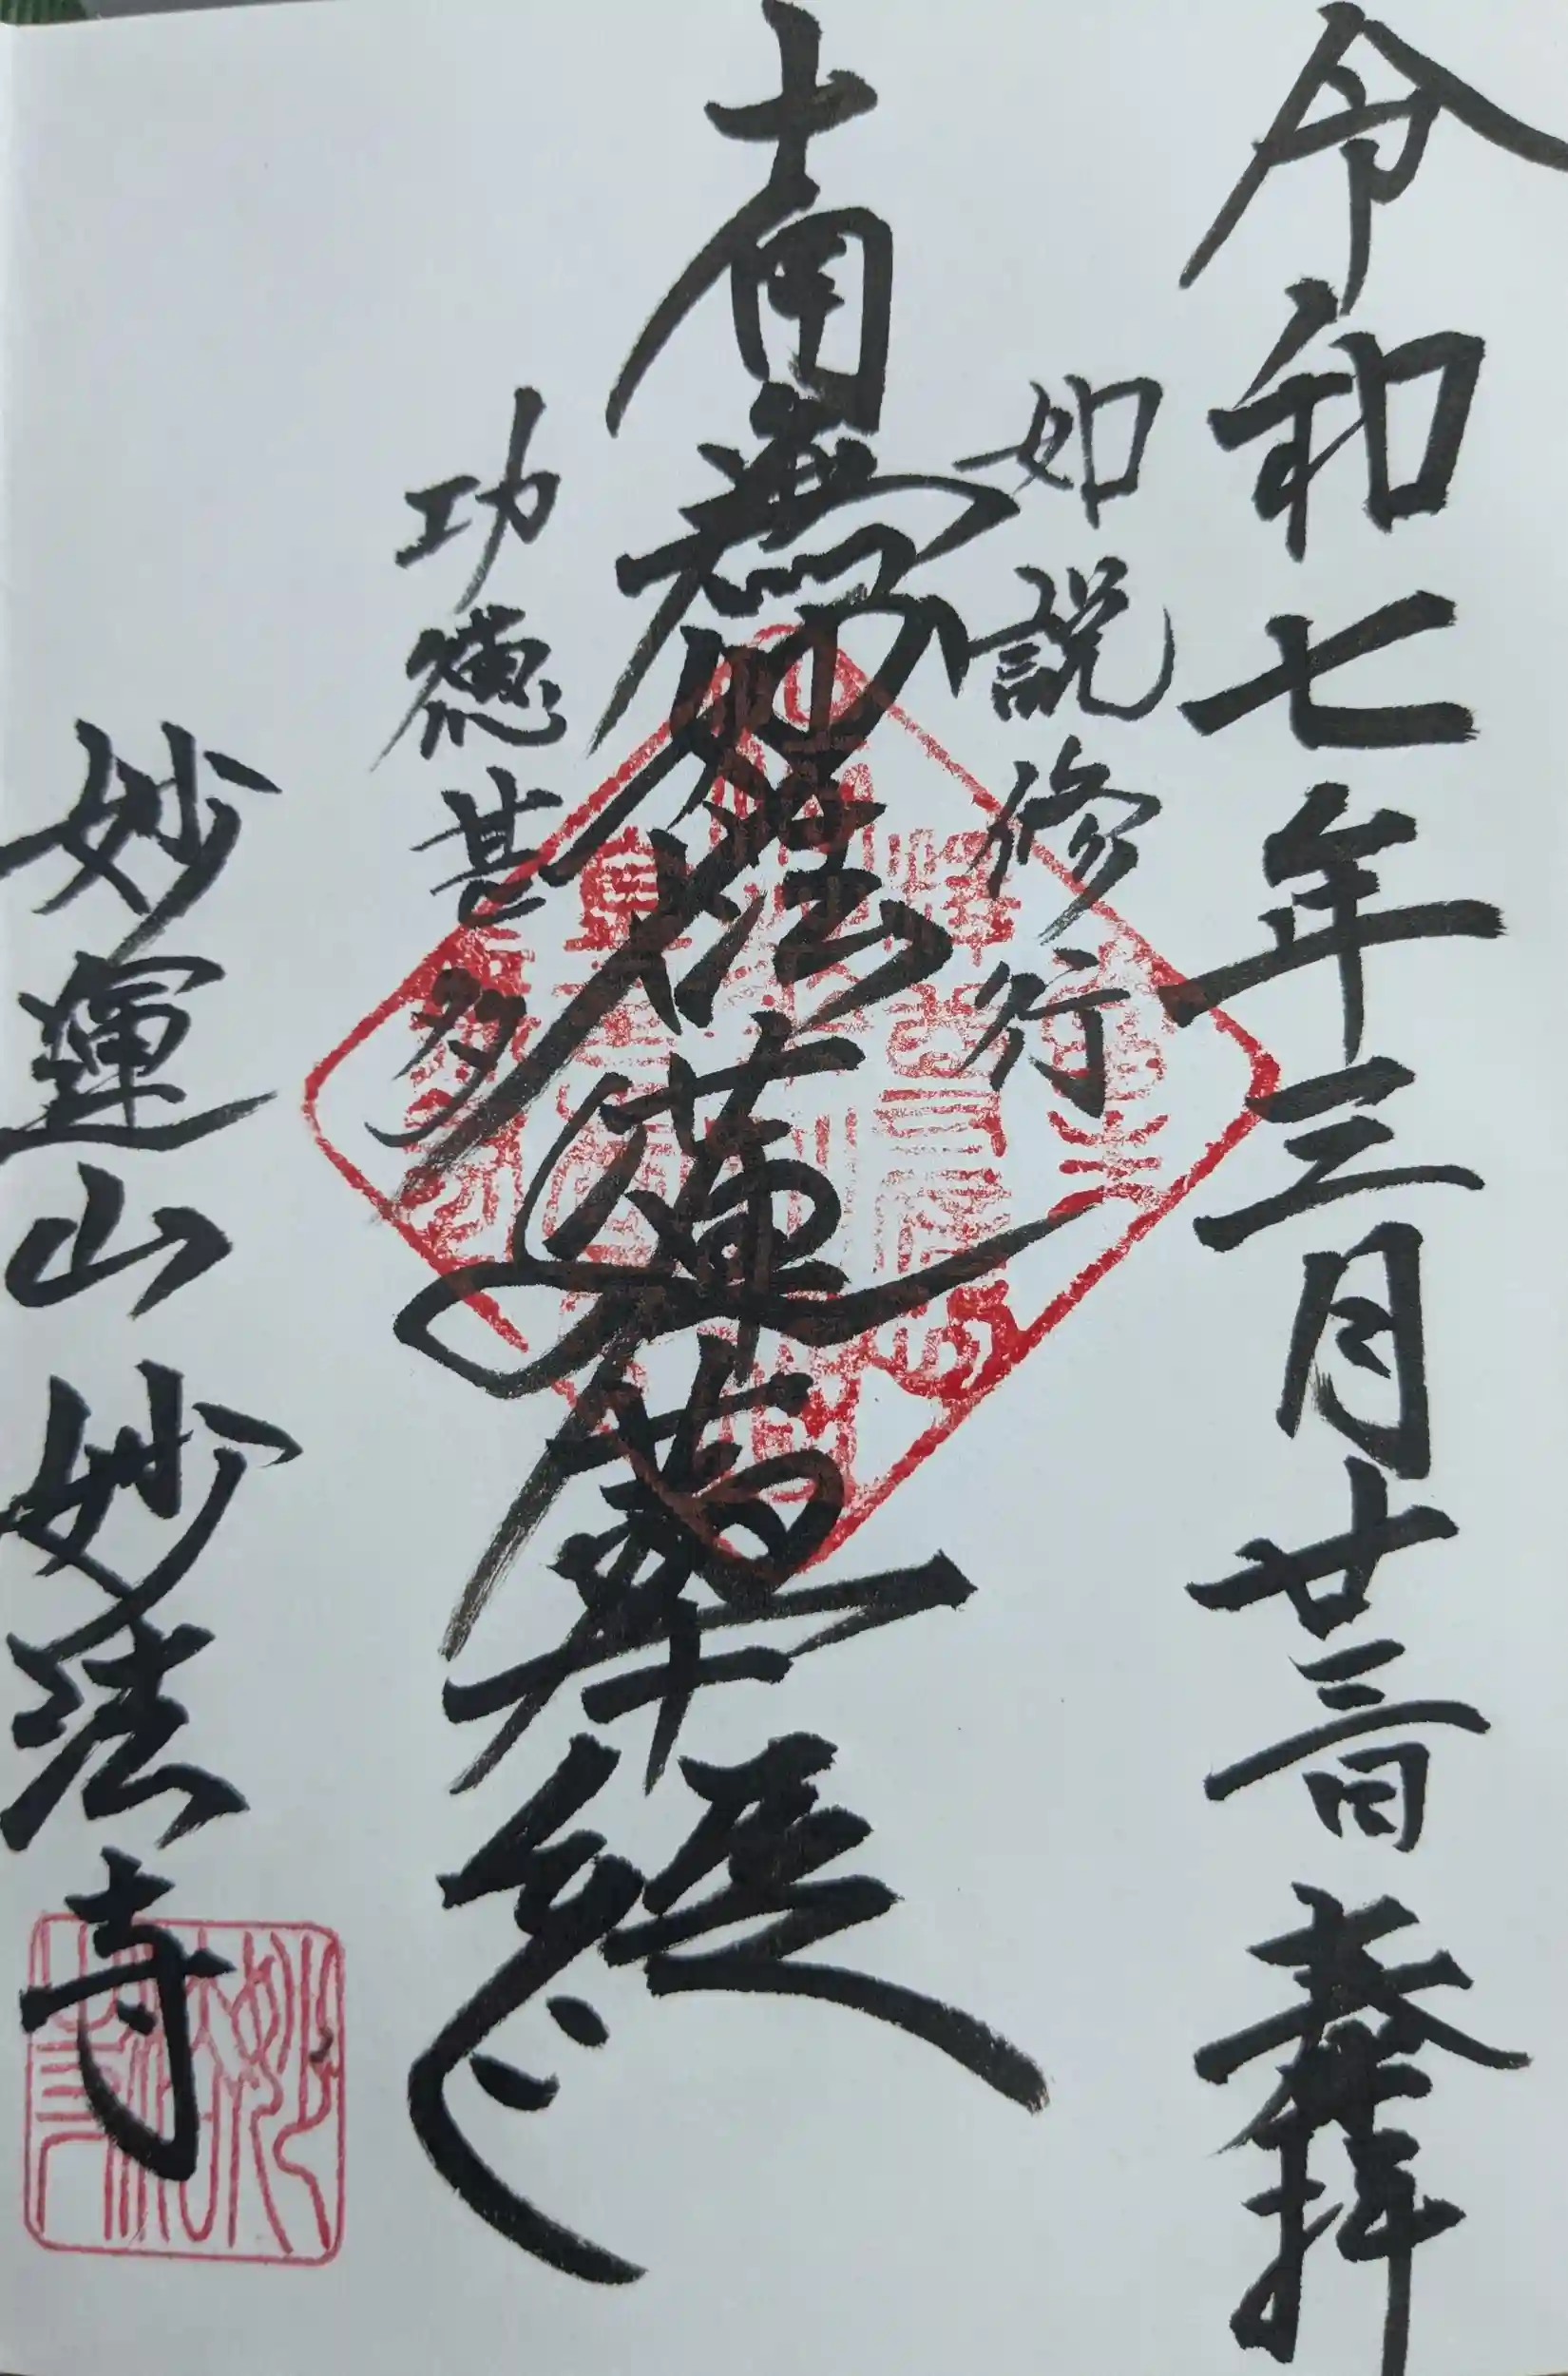 令和七年三月廿三日 奉拝
如説修行
南無妙法蓮華経
功徳甚多
妙運山 妙法寺
妙法寺